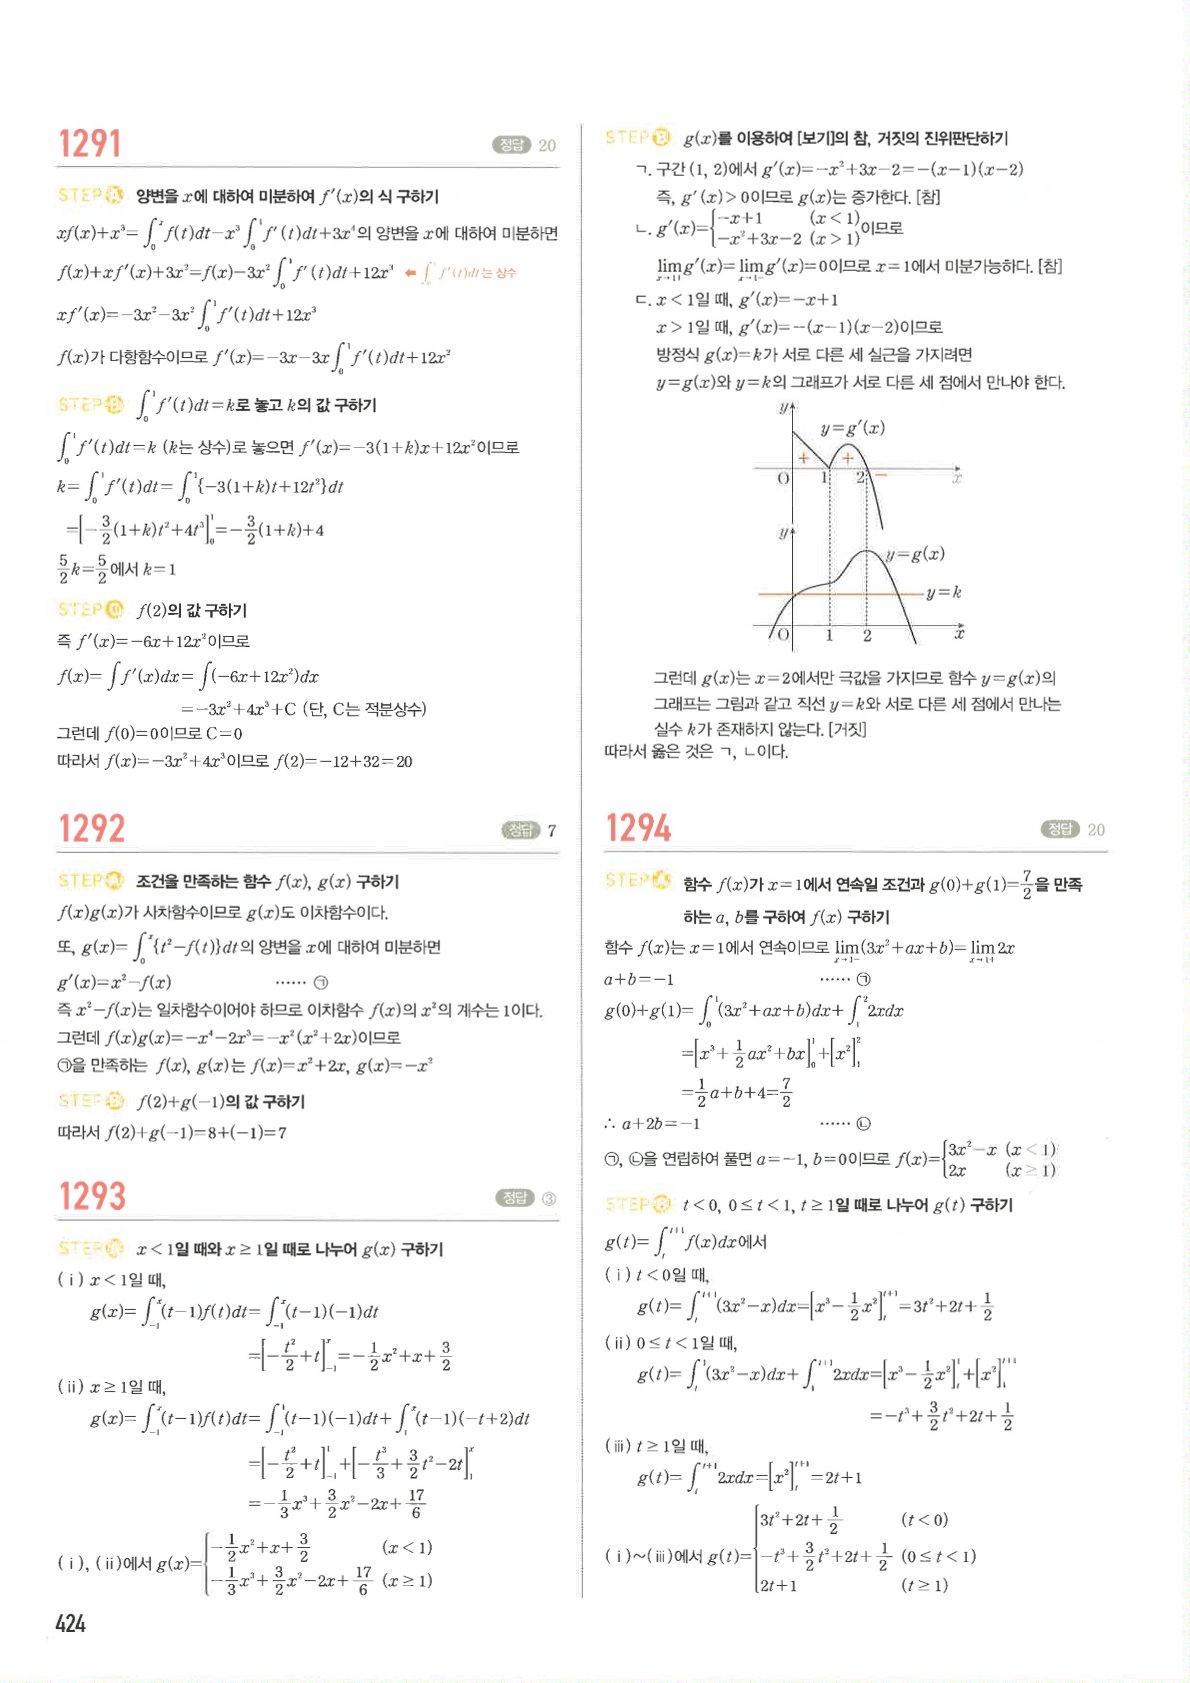 1291
정답 20
STEP A 양변을 x에 대하여 미분하여 f′(x)의 식 구하기
xf(x)+x³=∫₀ˣf(t)dt−x³∫₀¹f′(t)dt+3x⁴의 양변을 x에 대하여 미분하면
f(x)+xf′(x)+3x²=f(x)−3x²∫₀¹f′(t)dt+12x³ ⬅ ∫₀¹f′(t)dt는 상수
xf′(x)=−3x²−3x²∫₀¹f′(t)dt+12x³
f(x)가 다항함수이므로 f′(x)=−3x−3x∫₀¹f′(t)dt+12x²
STEP B ∫₀¹f′(t)dt=k로 놓고 k의 값 구하기
∫₀¹f′(t)dt=k (k는 상수)로 놓으면 f′(x)=−3(1+k)x+12x²이므로
k=∫₀¹f′(t)dt=∫₀¹{−3(1+k)t+12t²}dt
=[−3/2(1+k)t²+4t³]₀¹=−3/2(1+k)+4
5/2k=5/2에서 k=1
STEP C f(2)의 값 구하기
즉 f′(x)=−6x+12x²이므로
f(x)=∫f′(x)dx=∫(−6x+12x²)dx
=−3x²+4x³+C (단, C는 적분상수)
그런데 f(0)=0이므로 C=0
따라서 f(x)=−3x²+4x³이므로 f(2)=−12+32=20
1292
정답 7
STEP A 조건을 만족하는 함수 f(x), g(x) 구하기
f(x)g(x)가 사차함수이므로 g(x)도 이차함수이다.
또, g(x)=∫₀ˣ{t²−f(t)}dt의 양변을 x에 대하여 미분하면
g′(x)=x²−f(x) ······ ㉠
즉 x²−f(x)는 일차함수이어야 하므로 이차함수 f(x)의 x²의 계수는 1이다.
그런데 f(x)g(x)=−x⁴−2x³=−x²(x²+2x)이므로
㉠을 만족하는 f(x), g(x)는 f(x)=x²+2x, g(x)=−x²
STEP B f(2)+g(−1)의 값 구하기
따라서 f(2)+g(−1)=8+(−1)=7
1293
정답 ③
STEP A x<1일 때와 x≥1일 때로 나누어 g(x) 구하기
(ⅰ) x<1일 때,
g(x)=∫₋₁ˣ(t−1)f(t)dt=∫₋₁ˣ(t−1)(−1)dt
=[−t²/2+t]₋₁ˣ=−1/2x²+x+3/2
(ⅱ) x≥1일 때,
g(x)=∫₋₁ˣ(t−1)f(t)dt=∫₋₁¹(t−1)(−1)dt+∫₁ˣ(t−1)(−t+2)dt
=[−t²/2+t]₋₁¹+[−t³/3+3/2t²−2t]₁ˣ
=−1/3x³+3/2x²−2x+17/6
(ⅰ), (ⅱ)에서 g(x)={−1/2x²+x+3/2 (x<1)
−1/3x³+3/2x²−2x+17/6 (x≥1)
424
STEP B g(x)를 이용하여 [보기]의 참, 거짓의 진위판단하기
ㄱ. 구간 (1, 2)에서 g′(x)=−x²+3x−2=−(x−1)(x−2)
즉, g′(x)>0이므로 g(x)는 증가한다. [참]
ㄴ. g′(x)={−x+1 (x<1)
−x²+3x−2 (x>1) 이므로
lim(x→1+)g′(x)=lim(x→1−)g′(x)=0이므로 x=1에서 미분가능하다. [참]
ㄷ. x<1일 때, g′(x)=−x+1
x>1일 때, g′(x)=−(x−1)(x−2)이므로
방정식 g(x)=k가 서로 다른 세 실근을 가지려면
y=g(x)와 y=k의 그래프가 서로 다른 세 점에서 만나야 한다.
y
y=g′(x)
+ + −
O 1 2 x
y
y=g(x)
y=k
O 1 2 x
그런데 g(x)는 x=2에서만 극값을 가지므로 함수 y=g(x)의
그래프는 그림과 같고 직선 y=k와 서로 다른 세 점에서 만나는
실수 k가 존재하지 않는다. [거짓]
따라서 옳은 것은 ㄱ, ㄴ이다.
1294
정답 20
STEP A 함수 f(x)가 x=1에서 연속일 조건과 g(0)+g(1)=7/2을 만족
하는 a, b를 구하여 f(x) 구하기
함수 f(x)는 x=1에서 연속이므로 lim(x→1−)(3x²+ax+b)=lim(x→1+)2x
a+b=−1 ······ ㉠
g(0)+g(1)=∫₀¹(3x²+ax+b)dx+∫₁²2xdx
=[x³+1/2ax²+bx]₀¹+[x²]₁²
=1/2a+b+4=7/2
∴ a+2b=−1 ······ ㉡
㉠, ㉡을 연립하여 풀면 a=−1, b=0이므로 f(x)={3x²−x (x<1)
2x (x≥1)
STEP B t<0, 0≤t<1, t≥1일 때로 나누어 g(t) 구하기
g(t)=∫ₜᵗ⁺¹f(x)dx에서
(ⅰ) t<0일 때,
g(t)=∫ₜᵗ⁺¹(3x²−x)dx=[x³−1/2x²]ₜᵗ⁺¹=3t²+2t+1/2
(ⅱ) 0≤t<1일 때,
g(t)=∫ₜ¹(3x²−x)dx+∫₁ᵗ⁺¹2xdx=[x³−1/2x²]ₜ¹+[x²]₁ᵗ⁺¹
=−t³+3/2t²+2t+1/2
(ⅲ) t≥1일 때,
g(t)=∫ₜᵗ⁺¹2xdx=[x²]ₜᵗ⁺¹=2t+1
(ⅰ)~(ⅲ)에서 g(t)={3t²+2t+1/2 (t<0)
−t³+3/2t²+2t+1/2 (0≤t<1)
2t+1 (t≥1)